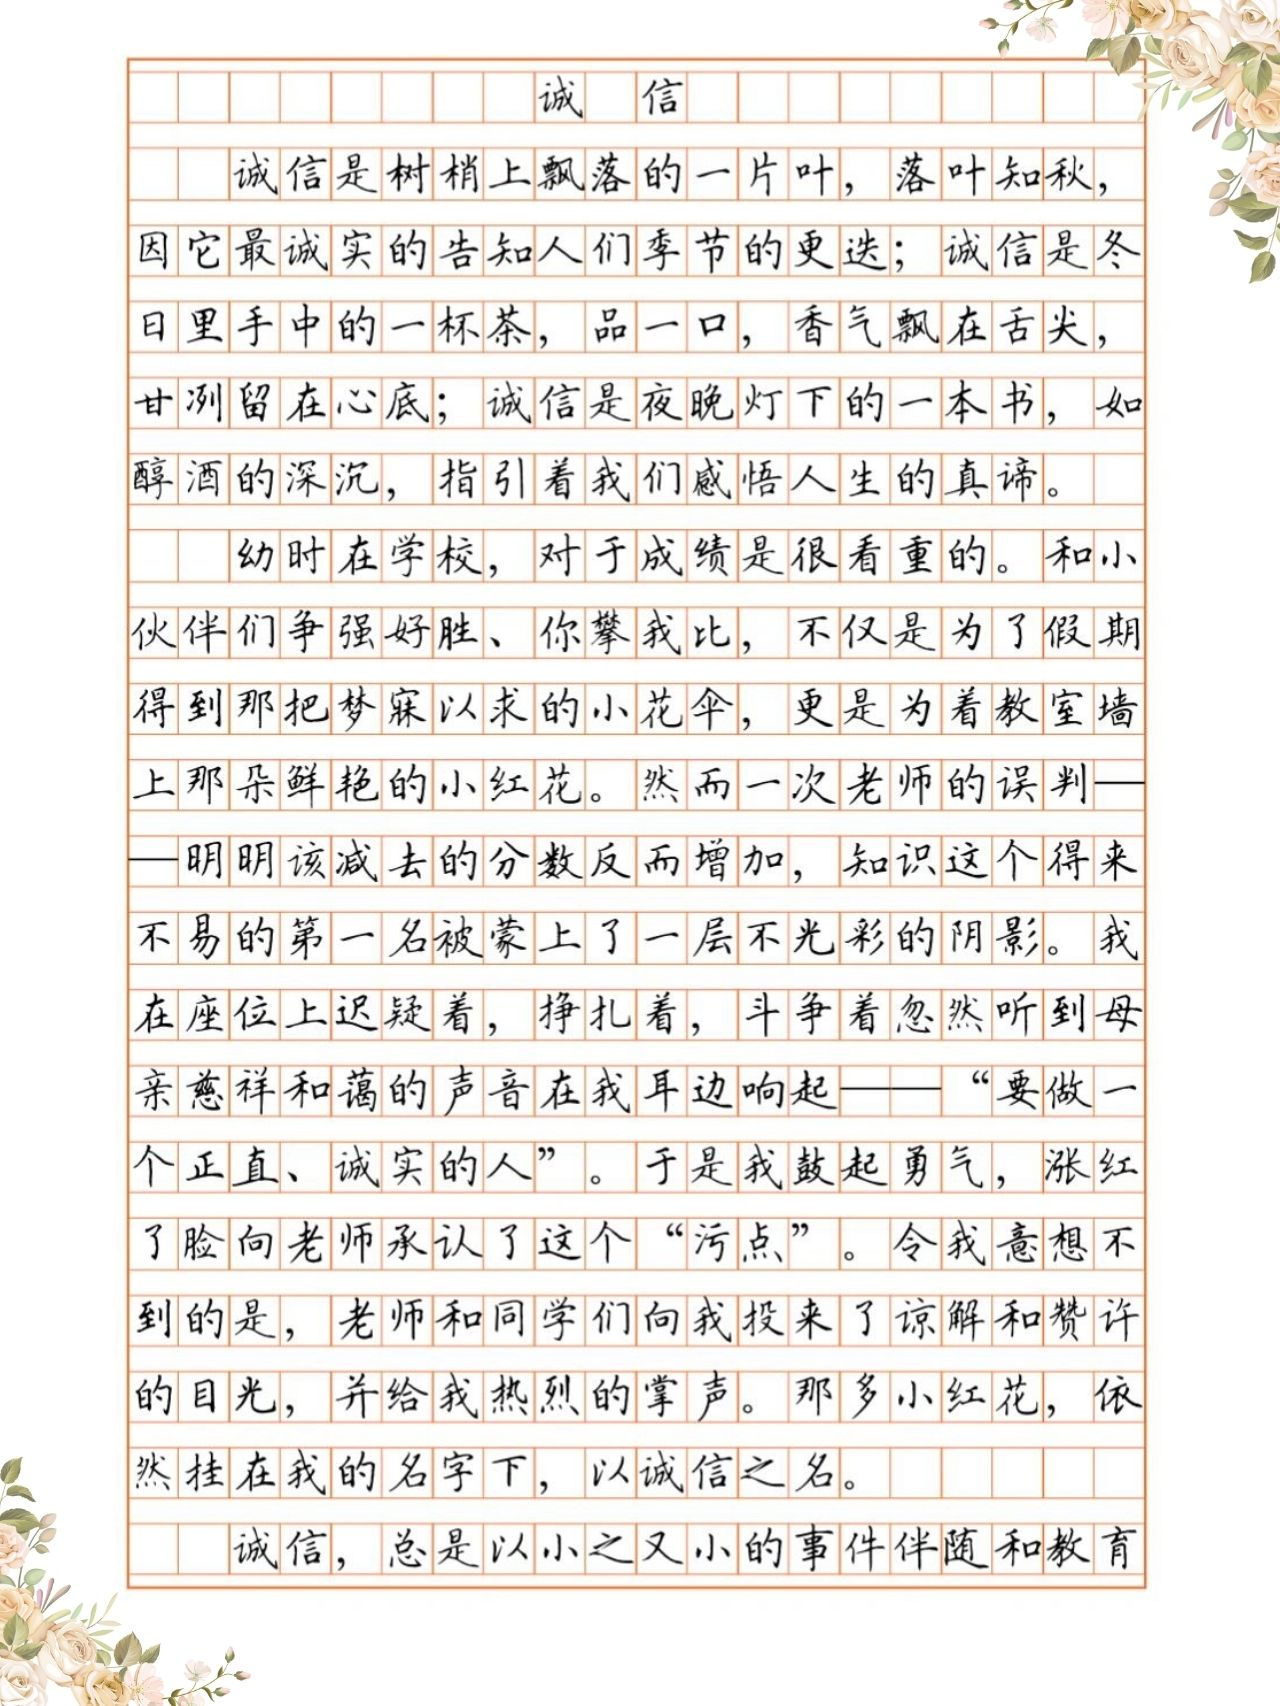 诚 信
诚信是树梢上飘落的一片叶，落叶知秋，
因它最诚实的告知人们季节的更迭；诚信是冬
日里手中的一杯茶，品一口，香气飘在舌尖，
甘冽留在心底；诚信是夜晚灯下的一本书，如
醇酒的深沉，指引着我们感悟人生的真谛。
幼时在学校，对于成绩是很看重的。和小
伙伴们争强好胜、你攀我比，不仅是为了假期
得到那把梦寐以求的小花伞，更是为着教室墙
上那朵鲜艳的小红花。然而一次老师的误判—
—明明该减去的分数反而增加，知识这个得来
不易的第一名被蒙上了一层不光彩的阴影。我
在座位上迟疑着，挣扎着，斗争着忽然听到母
亲慈祥和蔼的声音在我耳边响起——“要做一
个正直、诚实的人”。于是我鼓起勇气，涨红
了脸向老师承认了这个“污点”。令我意想不
到的是，老师和同学们向我投来了谅解和赞许
的目光，并给我热烈的掌声。那多小红花，依
然挂在我的名字下，以诚信之名。
诚信，总是以小之又小的事件伴随和教育